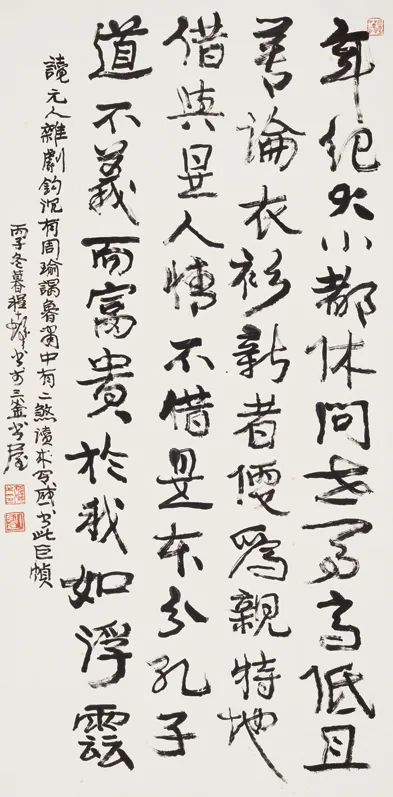 年纪大小都休问世可高低且
善論衣衫新者便爲親特地
借與是人情不借是本分孔子
道不義而富貴於我如浮雲
讀元人雜劇鈎沉有周瑜謁魯肅中有二煞讀來
感書此巨幀
丙子冬暮程 書于三 書屋